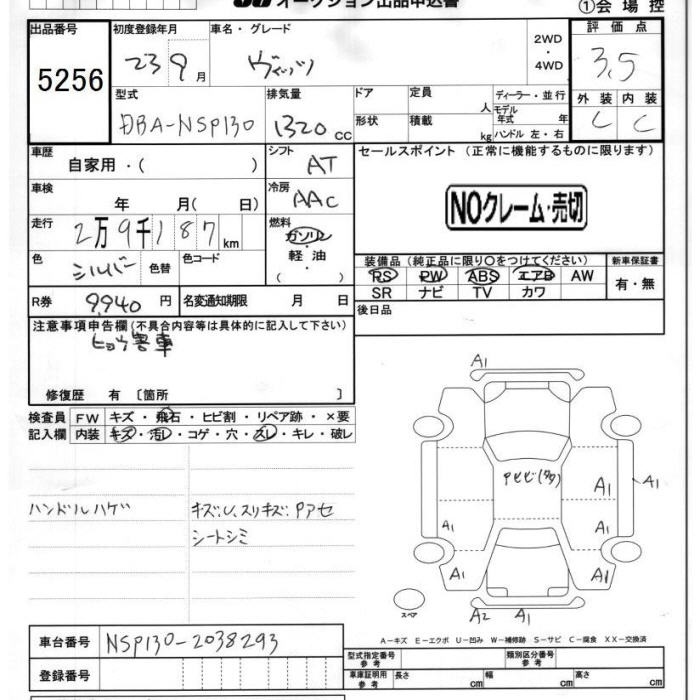 オークション出品申込書
①会場控
出品番号
5256
初度登録年月
23 9月
車名・グレード
ヴィッツ
2WD
・
4WD
評価点
3.5
型式
DBA-NSP130
排気量
1320 CC
ドア
形状
定員 人
積載 kg
ディーラー・並行
モデル年式 年
ハンドル 左・右
外装 内装
C C
車歴
自家用・( )
シフト
AT
車検
年 月( 日)
冷房
AAC
走行
2万9千187 km
燃料
ガソリン
・
軽油
( )
色
シルバー
色替
色コード
R券
9,940 円
名変通知期限 月 日
セールスポイント (正常に機能するものに限ります)
NOクレーム・売切
装備品 (純正品に限り○をつけてください)
新車保証書
RS PW ABS エアB AW
SR ナビ TV カワ
有・無
後日品
注意事項申告欄(不具合内容等は具体的に記入して下さい)
ヒョウ害車
修復歴 有 〔箇所 〕
検査員
記入欄
FW キズ・飛石・ヒビ割・リペア跡・×要
内装 キズ・汚レ・コゲ・穴・スレ・キレ・破レ
ハンドルハゲ
キズ:U、スリキズ:Pアセ
シートシミ
A1
A1
A1
A1
A1
A1
A1
A2 A1
スペア
A-キズ E-エクボ U-凹み W-補修跡 S-サビ C-腐食 XX-交換済
車台番号
NSP130-2038293
登録番号
型式指定番号
参考
類別区分番号
参考
車庫証明用
参考
長さ cm 幅 cm 高さ cm